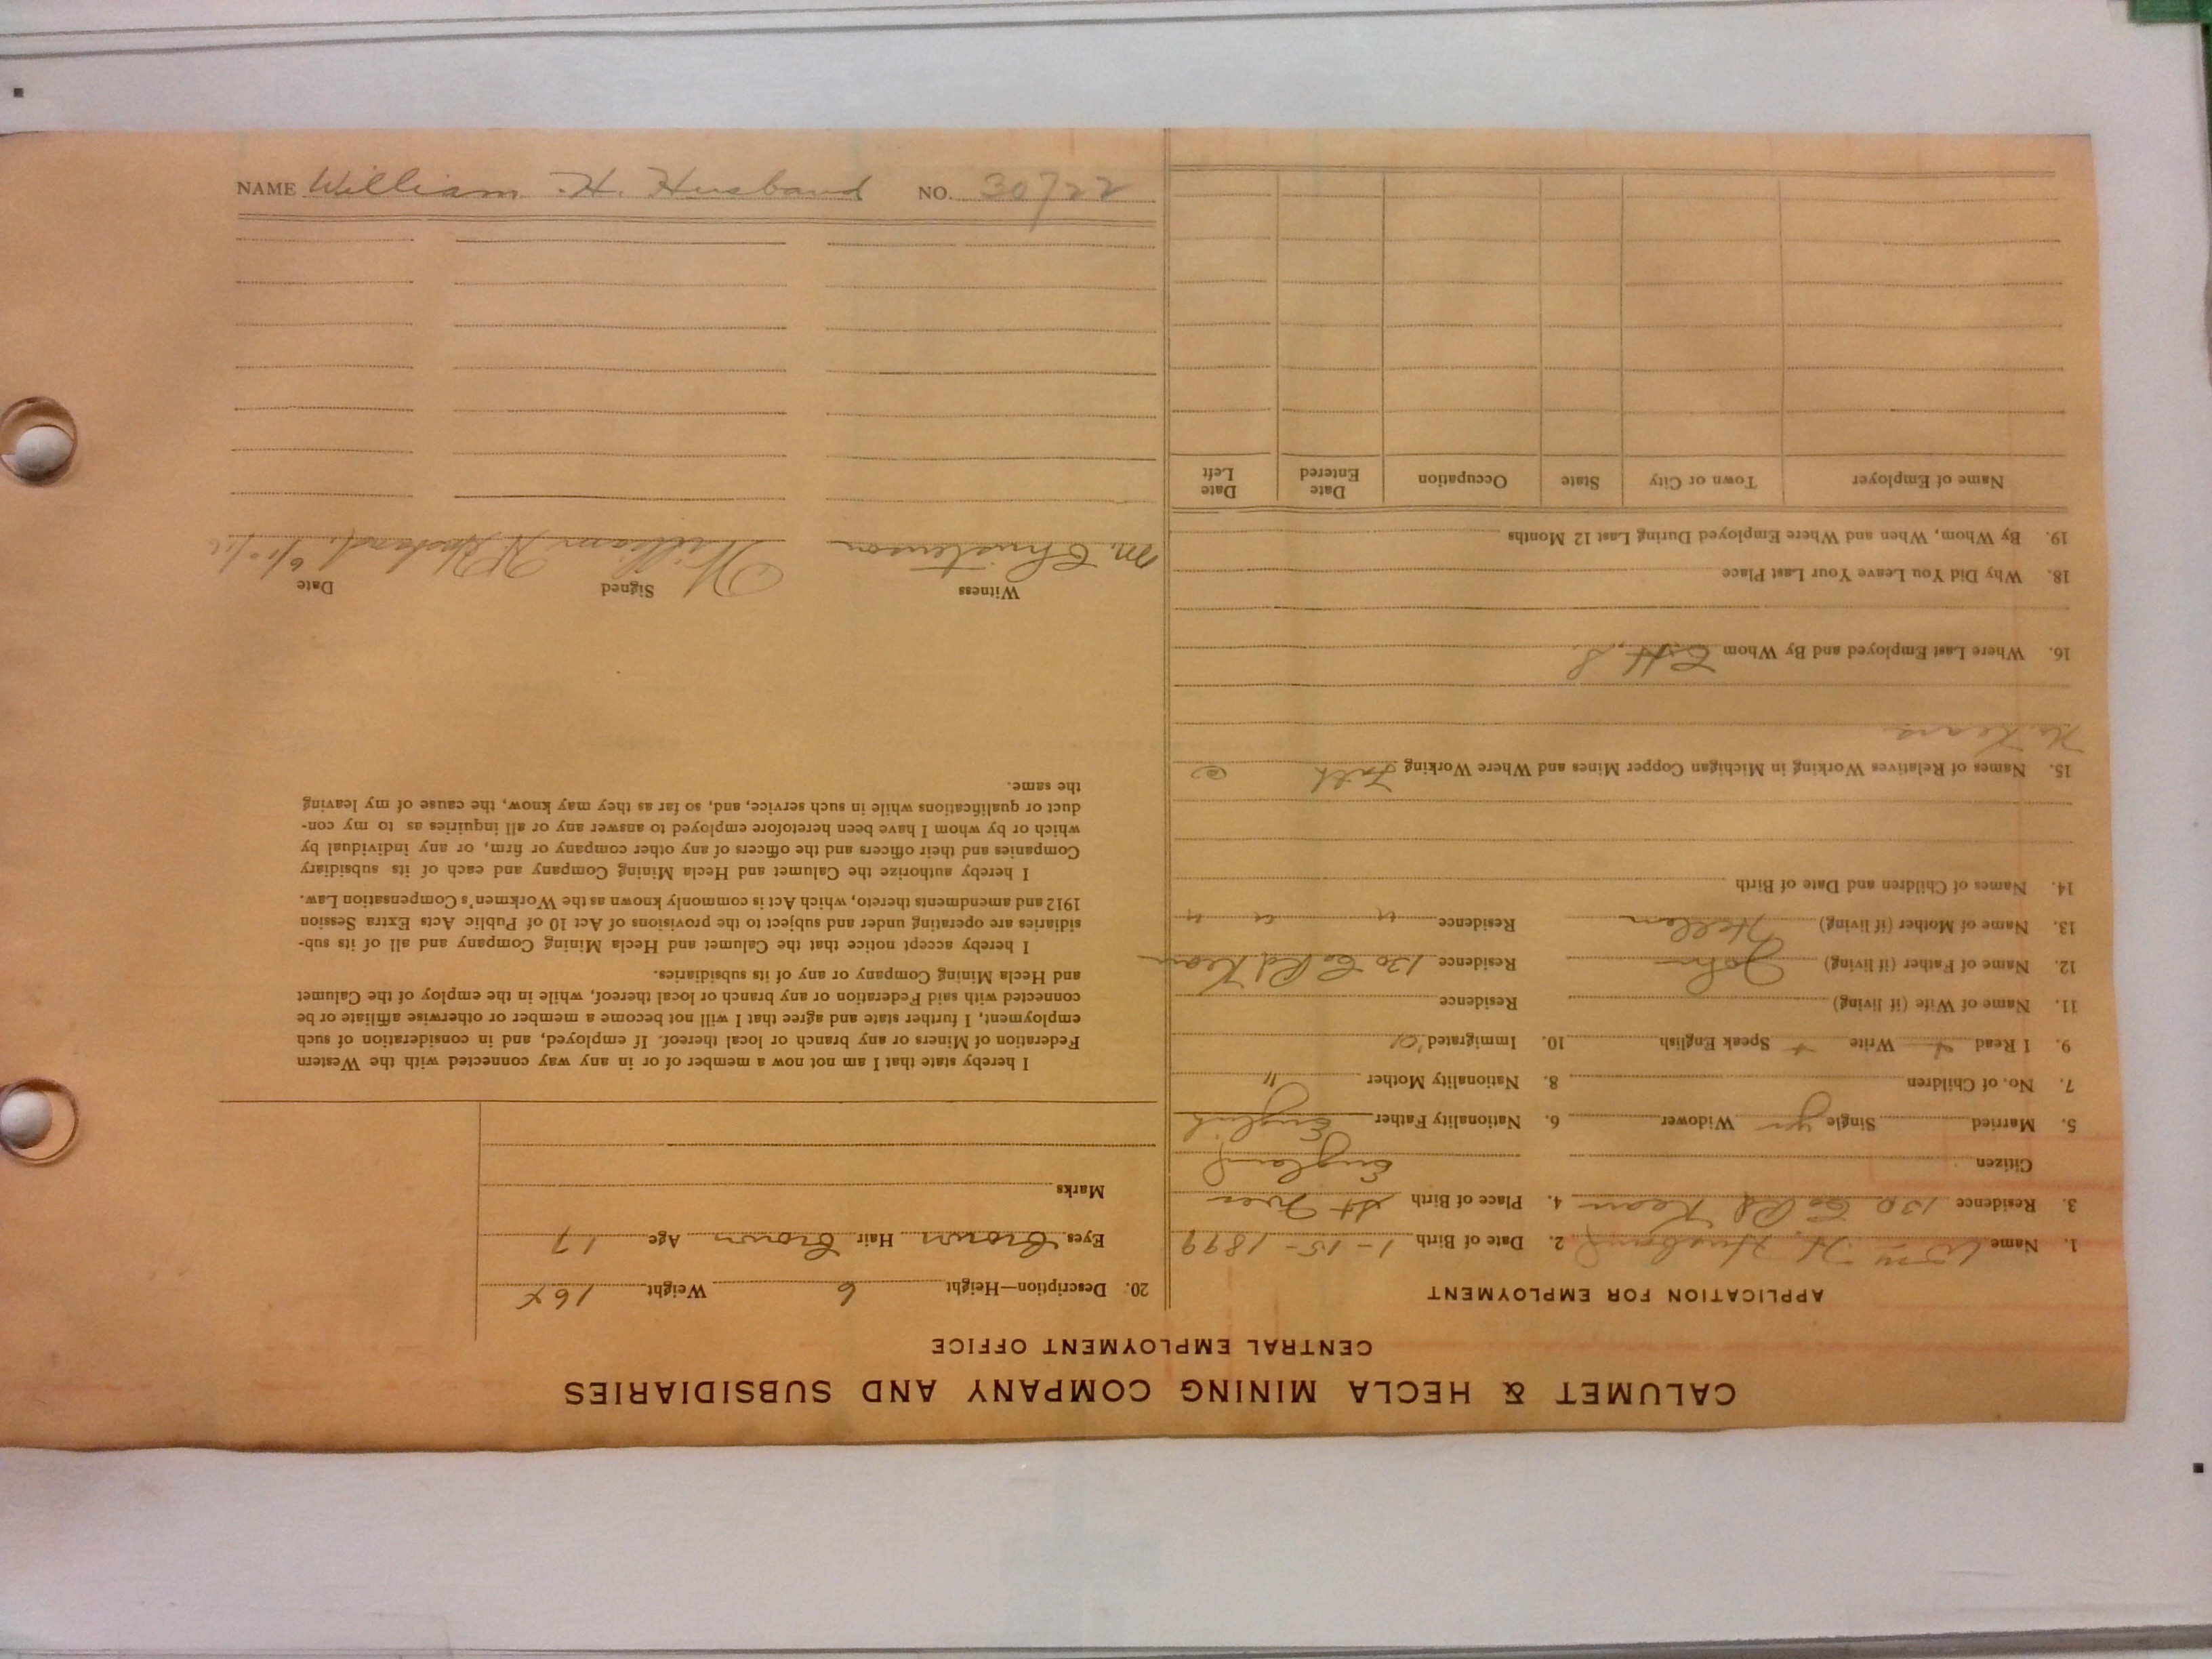 CALUMET & HECLA MINING COMPANY AND SUBSIDIARIES
CENTRAL EMPLOYMENT OFFICE
APPLICATION FOR EMPLOYMENT
1. Name Wm H. Husband 2. Date of Birth 1-15-1899
3. Residence 130 Co Rd Kear 4. Place of Birth St Ives
Citizen England
5. Married Single yes Widower 6. Nationality Father English
7. No. of Children 8. Nationality Mother "
9. I Read Write + Speak English 10. Immigrated '01
11. Name of Wife (if living) Residence
12. Name of Father (if living) John Residence 130 Co Rd Kear
13. Name of Mother (if living) Hellen Residence " " "
14. Names of Children and Date of Birth
15. Names of Relatives Working in Michigan Copper Mines and Where Working Fath @
No. Kears
16. Where Last Employed and By Whom C.H.S.
18. Why Did You Leave Your Last Place
19. By Whom, When and Where Employed During Last 12 Months
Name of Employer Town or City State Occupation Date Entered Date Left
20. Description—Height 6 Weight 164
Eyes Brown Hair Brown Age 17
Marks
I hereby state that I am not now a member of or in any way connected with the Western
Federation of Miners or any branch or local thereof. If employed, and in consideration of such
employment, I further state and agree that I will not become a member or otherwise affiliate or be
connected with said Federation or any branch or local thereof, while in the employ of the Calumet
and Hecla Mining Company or any of its subsidiaries.
I hereby accept notice that the Calumet and Hecla Mining Company and all of its sub-
sidiaries are operating under and subject to the provisions of Act 10 of Public Acts Extra Session
1912 and amendments thereto, which Act is commonly known as the Workmen's Compensation Law.
I hereby authorize the Calumet and Hecla Mining Company and each of its subsidiary
Companies and their officers and the officers of any other company or firm, or any individual by
which or by whom I have been heretofore employed to answer any or all inquiries as to my con-
duct or qualifications while in such service, and, so far as they may know, the cause of my leaving
the same.
Witness Signed Date
M. Christenson William H. Husband
NAME William H. Husband NO. 30722